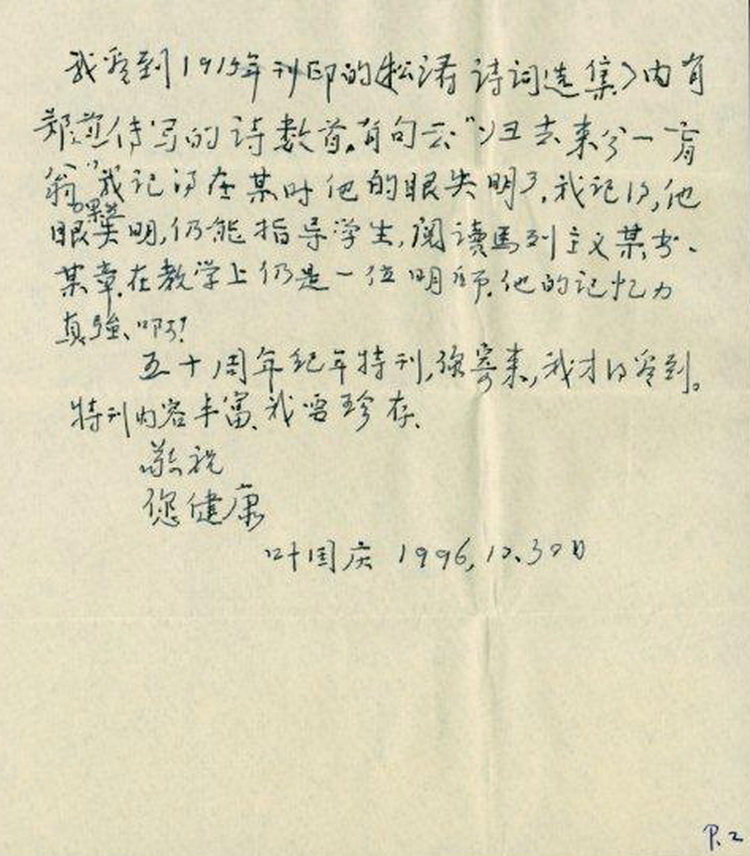 我看到1915年刊印的《松涛诗词选集》内有
郑道传写的诗数首。有句云"归去来兮一盲
翁"我记得在某时他的眼失明了,我记得,他
眼虽失明,仍能指导学生,阅读馬列主义某书、
某章.在教学上仍是一位明师.他的记忆力
真強、啊!
五十周年纪年特刊,您寄来,我才得看到。
特刊内容丰富、我当珍存.
敬祝
您健康
叶国庆 1996,12.30日
P.2